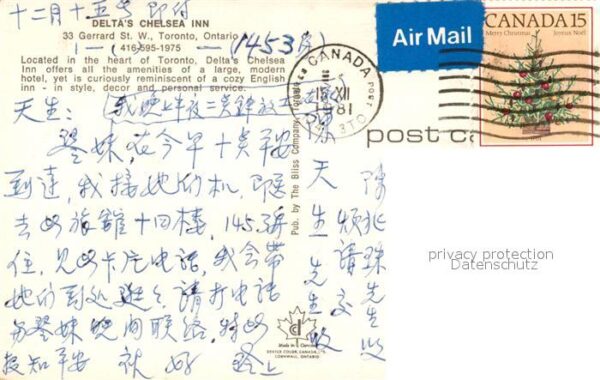 十二月十五号 即付
DELTA'S CHELSEA INN
33 Gerrard St. W., Toronto, Ontario
(416-595-1975
(1453房)
Located in the heart of Toronto, Delta's Chelsea
Inn offers all the amenities of a large, modern
hotel, yet is curiously reminiscent of a cozy English
inn - in style, decor and personal service.
天生：
(我晚上半夜二点钟放工
琴妹，在今早十点平安
到达，我接她们机，即送
去此旅馆十四楼，1453号
住，见此卡片电话，我会带
她们到处逛逛，请打电话
与琴妹晚间联络，特此
报知平安 祝好
天生先生收
烦请交
陈兆珠先生收
Pub. by The Bliss Company, Toronto
Made in Canada
DEXTER COLOR CANADA, LTD.
CORNWALL, ONTARIO
Air Mail
CANADA 15
Merry Christmas
Joyeux Noël
CANADA
15 XII
81
post ca
privacy protection
Datenschutz